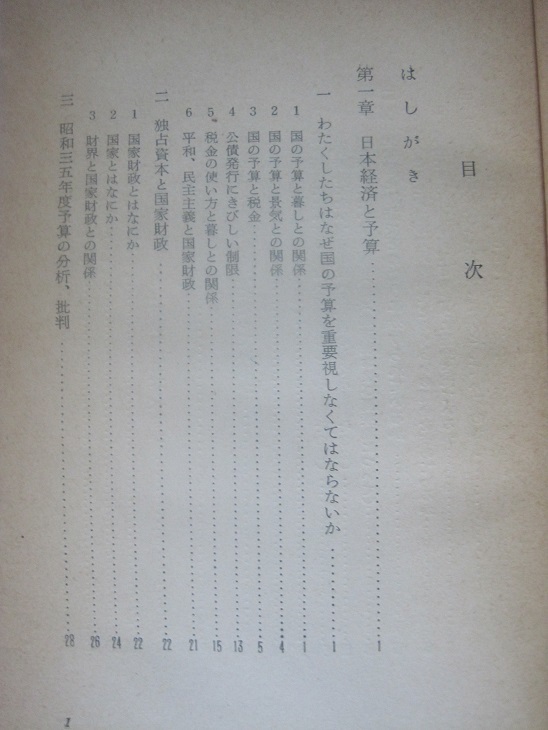 目次
はしがき
第一章 日本経済と予算……1
一 わたくしたちはなぜ国の予算を重要視しなくてはならないか……1
1 国の予算と暮しとの関係……1
2 国の予算と景気との関係……4
3 国の予算と税金……5
4 公債発行にきびしい制限……13
5 税金の使い方と暮しとの関係……15
6 平和、民主主義と国家財政……21
二 独占資本と国家財政……22
1 国家財政とはなにか……22
2 国家とはなにか……24
3 財界と国家財政との関係……26
三 昭和三五年度予算の分析、批判……28
1